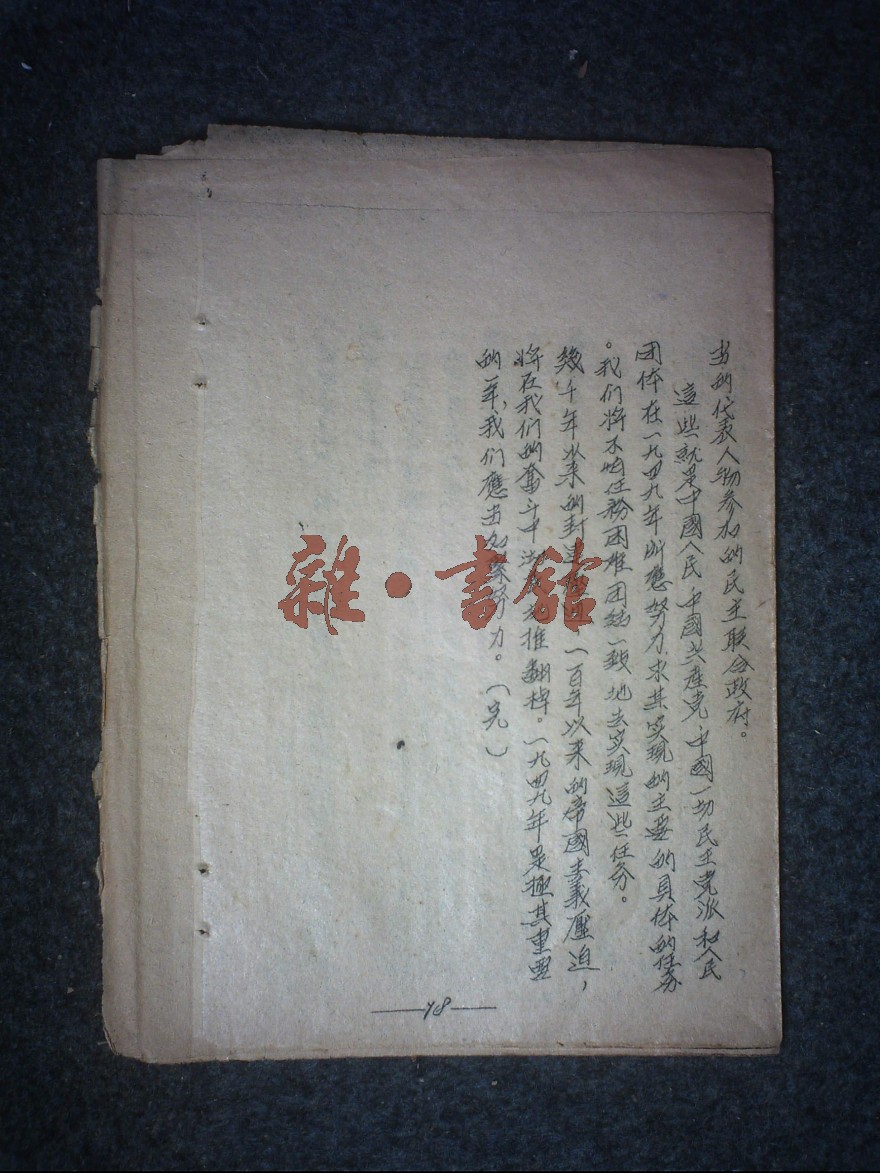 当的代表人物参加的民主联合政府。
這些就是中國人民、中國共産党、中國一切民主党派和人民
团体在一九四九年所應努力求其实现的主要的具体的任务
。我们将不怕任務困难团结一致地去实现這些任务。
幾千年以来的封建 一百年以来的帝國主義壓迫，
将在我们的奮斗中 推翻掉。一九四九年是極其重要
的一年，我们應当 努力。（完）
—78—
雜·書舘